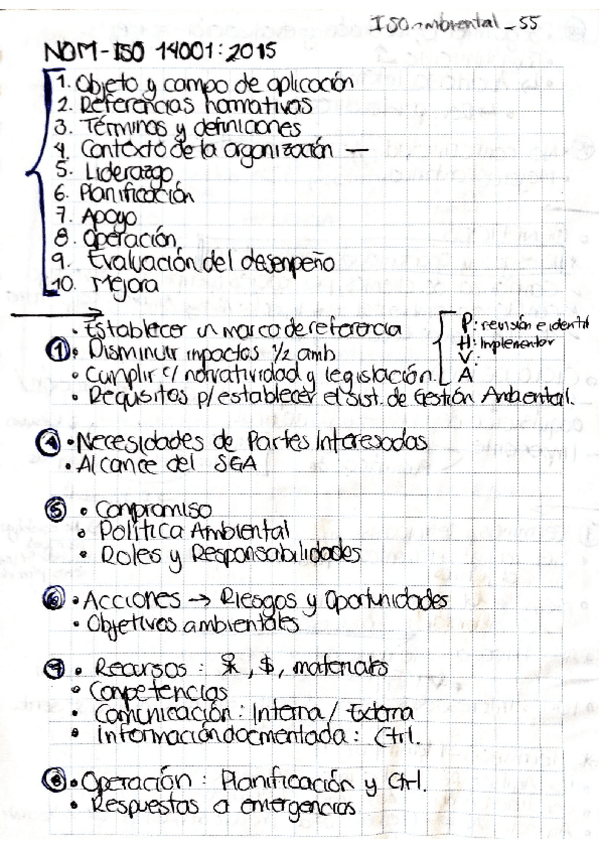 ISO ambiental_55
NOM-ISO 14001:2015
1. Objeto y campo de aplicación
2. Referencias normativas
3. Términos y definiciones
4. Contexto de la organización —
5. Liderazgo
6. Planificación
7. Apoyo
8. Operación
9. Evaluación del desempeño
10. Mejora
• Establecer un marco de referencia
① • Disminuir impactos 1/2 amb
• Cumplir c/ norvatividad y legislación
P: revisión e identif
H: Implementar
V:
A
• Requisitos p/ establecer el sist. de Gestión Ambiental.
④ • Necesidades de Partes Interesadas
• Alcance del SGA
⑤ • Compromiso
• Política Ambiental
• Roles y Responsabilidades
⑥ • Acciones → Riesgos y Oportunidades
• Objetivos ambientales
⑦ • Recursos: 웃, $, materiales
• Competencias
• Comunicación: Interna / Externa
• Información docmentada: Ctrl.
⑧ • Operación: Planificación y Ctrl.
• Respuestas a emergencias